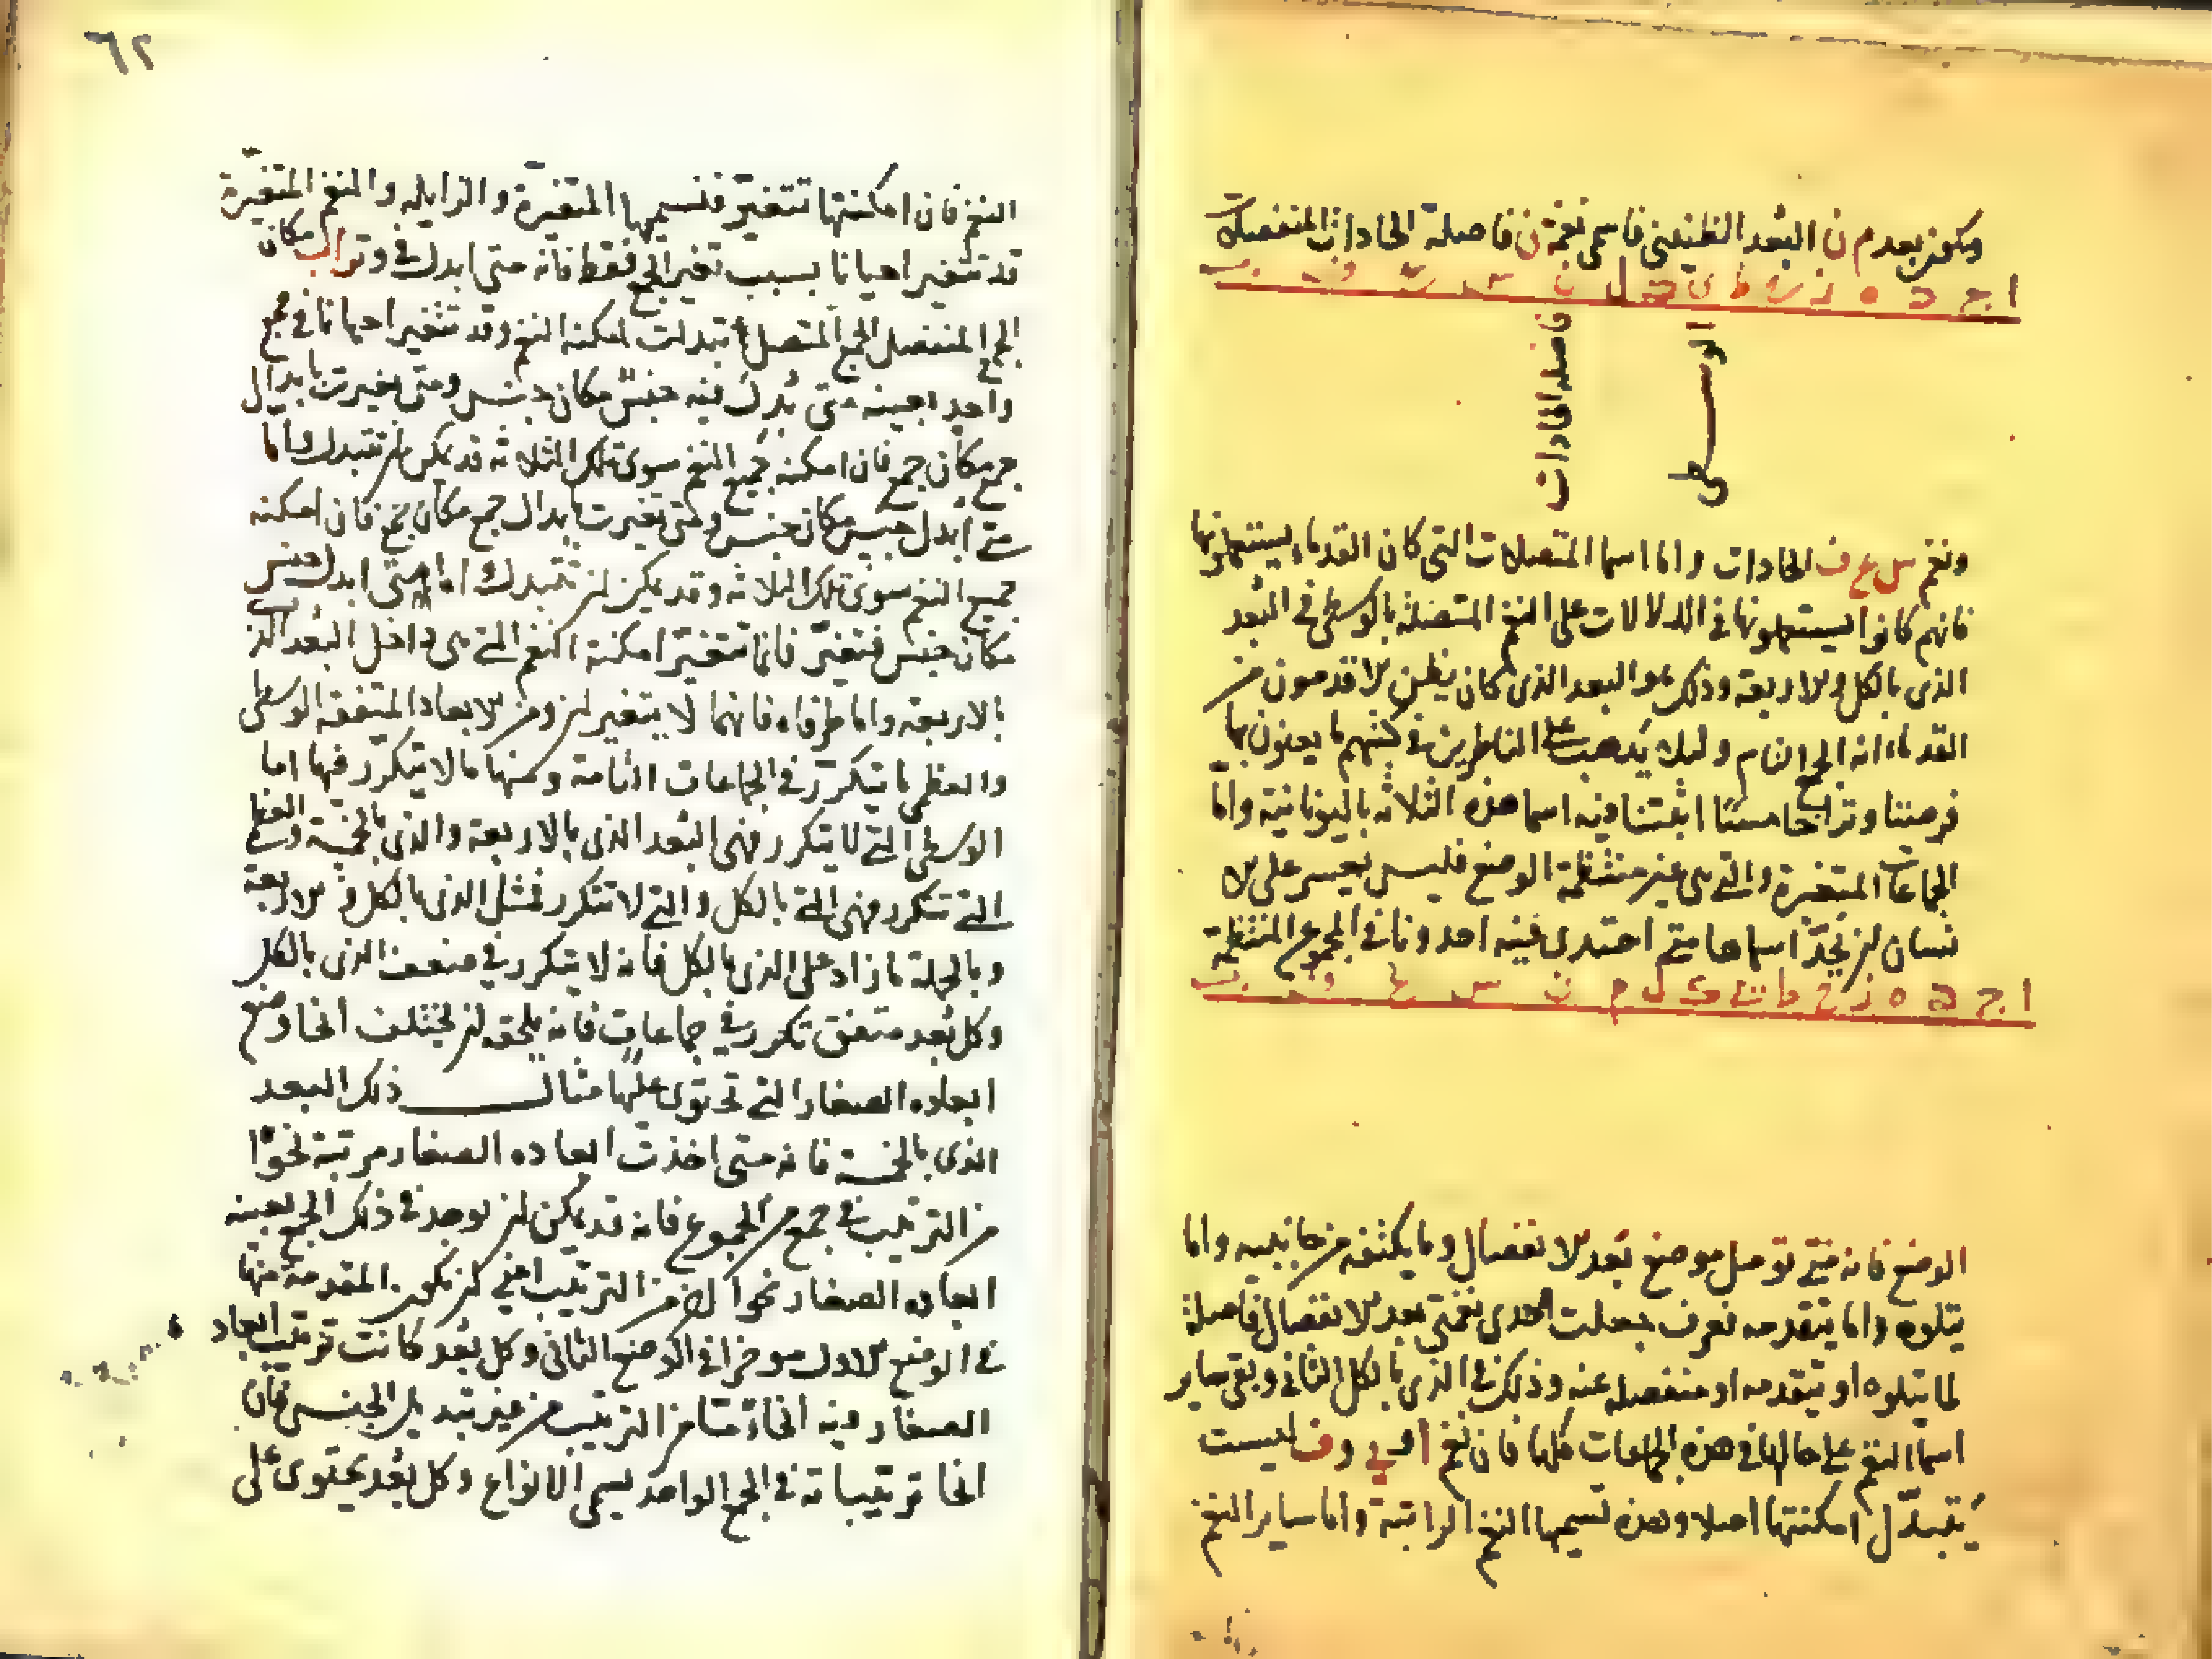 ويكون بعد م ن البعد الطنيني فاسمي نغمة ن فاصلة الحادات المنفصلات
ا ج د ه ز
فاصلة الحادات
الوسطى
ونغم س ع ف الحادات واما اسما المتصلات التي كان القدماء يستعملونها
فانهم كانوا يستعملونها في الدلالات على النغم المتصلة بالوسطى في البعد
الذي بالكل والاربعة وذلك هو البعد الذي كان يظن الاقدمون من
القدماء انه الجمع التام ولئلا يذهب على الناظرين في كتبهم ما يعنون بها
فرضنا وترا خامسا اثبتنا فيه اسما هذه الثلاثة باليونانية واما
الجماعات المتغيرة والتي هي غير منتظمة الوضع فليس يعسر على الا
نسان ان يجد اسماها متى احتذى فيه احدونا في الجموع المنتظمة
ا ج د ه ز
الوضع فانه متى تؤمل موضع بعد الانفصال وما يكتنفه من جانبيه واما
يتلوه واما يتقدمه فعرف جعلت احدى نغمتي بعد الانفصال فاصلة
لما يتلوه او يتقدمه او منفصله عنه وذلك في الذي بالكل الثاني وبقي ساير
اسما النغم على حالها في هذه الجماعات كلها فان نغم ا وف ليست
يتبدل امكنتها اصلا وهذه نسميها النغم الراتبة واما ساير النغم
٦٢
النغم فان امكنتها تتغير فنسميها المتغيرة والزايله والنغم المتغيرة
قد تتغير احيانا بسبب تغير الجمع فقط فانه متى ابدل في وتر اب مكان
الجمع المنفصل الجمع المتصل تبدلت امكنة النغم وقد تتغير احيانا في جمع
واحد بعينه متى بدل فيه جنس مكان جنس ومتى تغيرت بابدال
جمع مكان جمع فان امكنة جميع النغم سوى تلك الثلاثة قد يمكن ان تتبدل واما
متى ابدل جنس مكان جنس ومتى تغيرت بابدال جمع مكان جمع فان امكنة
جميع النغم سوى تلك الثلاثة وقد يمكن ان تتبدل اما متى ابدل جنس
مكان جنس فتغير فانما تتغير امكنة النغم التي هي داخل البعد الذي
بالاربعة واما طرفاه فانهما لا يتغيران ومن الابعاد المتفقة الوسطى
والعظمى ما يتكرر في الجماعات التامة ومنها ما لا يتكرر فيها اما
الوسطى التي لا يتكرر فهي البعد الذي بالاربعة والذي بالخمسة والعظمى
التي تتكرر فهي التي بالكل والتي لا تتكرر فمثل الذي بالكل والاربعة
وبالجملة ما زاد على الذي بالكل فانه لا يتكرر في ضعف الذي بالكل
وكل بعد متفق تكرر في جماعات فانه يلحقه ان تختلف انحا وضع
ابعاده الصغار التي تحتوي عليها مثال ذلك البعد
الذي بالخمسة فانه متى اخذت ابعاده الصغار مرتبة نحوا
من الترتيب في جمع من الجموع فانه قد يمكن ان يوجد في ذلك الجمع بعينه
ابعاده الصغار نحوا اخر من الترتيب اعني ان يكون المقدمة منها
في الوضع الاول موخرا في الوضع الثاني وكل بعد كانت ترتيب ابعاد
الصغار فيه انحاء ما من الترتيب من غير تبديل الجنس فان
انحا ترتيباته في الجمع الواحد يسمى الانواع وكل بعد يحتوي على